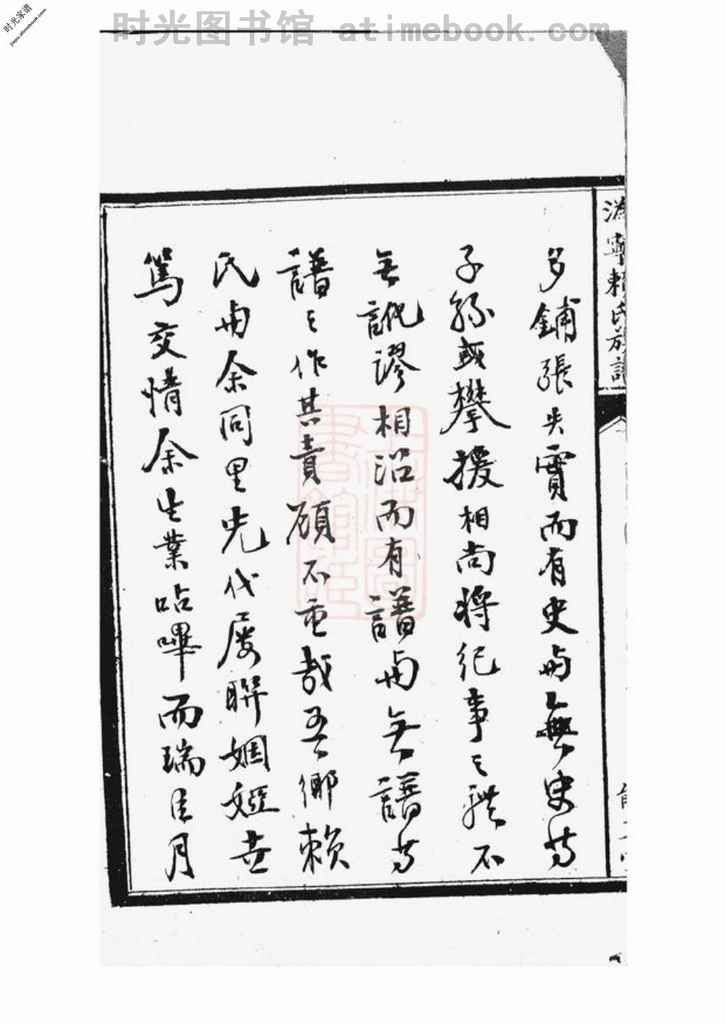 时光图书馆 atimebook.com
时光家谱
寧賴氏族譜
多鋪張失實而有史與無史等
子孫或攀援相尚將紀事之體不
無訛謬相沿而有譜與無譜等
譜之作其責顧不重哉吾鄉賴
氏與余同里先代屢聯姻婭世
篤交情余生業呫嗶而瑞月